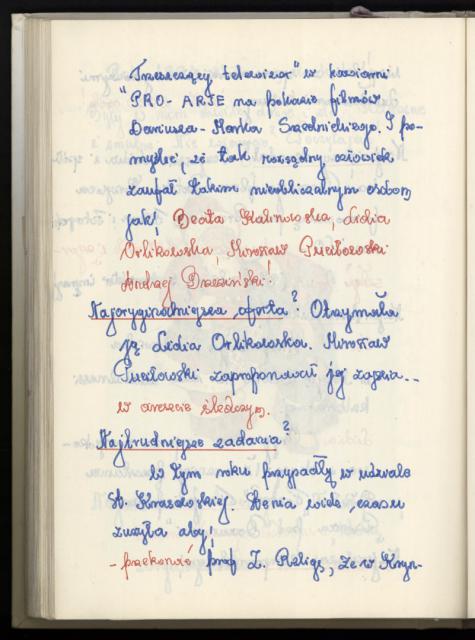 Trzeszczący telewizor" w kawiarni
"PRO-ARTE na pokazie filmów
Dariusza-Marka Srzednickiego. I po-
myśleć, że tak rozsądny człowiek
zaufał takim nieobliczalnym osobom
jak! Beata Kalinowska, Lidia
Orlikowska, Mirosław Puciłowski
Andrzej Brzeziński!
Najoryginalniejsza oferta? Otrzymała
ją Lidia Orlikowska. Mirosław
Puciłowski zaproponował jej zajęcia..
w areszcie śledczym.
Najtrudniejsze zadania?
w tym roku przypadły w udziale
A. Kraszewskiej. Henia wiele czasu
zużyła aby!
- przekonać prof Z. Religę, że w Kryn-